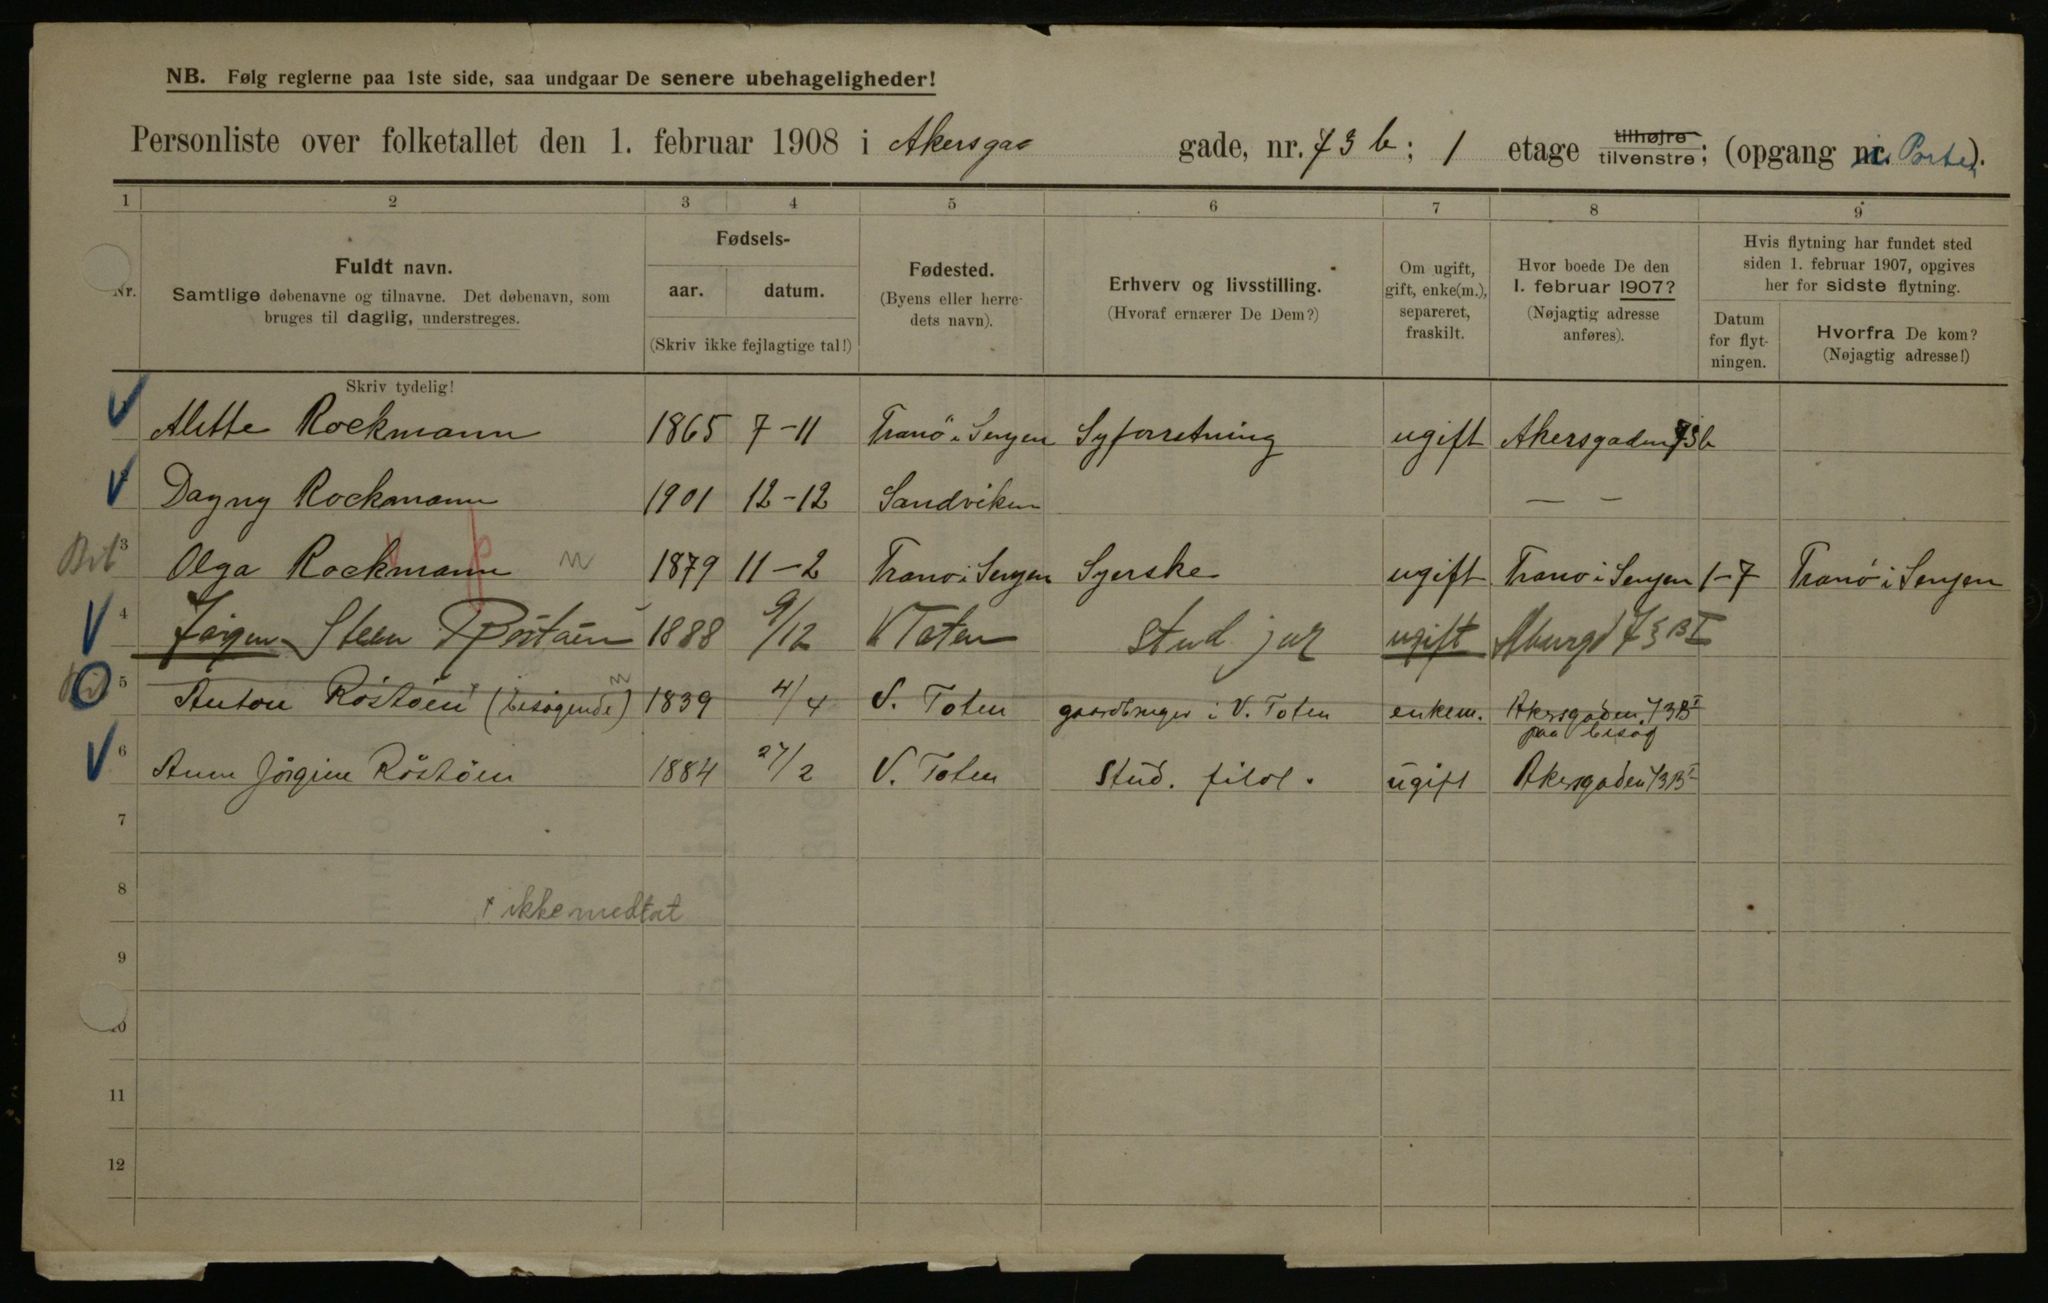 NB. Følg reglerne paa 1ste side, saa undgaar De senere ubehageligheder!
Personliste over folketallet den 1. februar 1908 i Akersgad gade, nr. 73 b; 1 etage tilhøjre tilvenstre; (opgang nr. Porten).
1 2 3 4 5 6 7 8 9
Nr.
Fuldt navn.
Samtlige døbenavne og tilnavne. Det døbenavn, som
bruges til daglig, understreges.
Skriv tydelig!
Fødsels-
aar. datum.
(Skriv ikke fejlagtige tal!)
Fødested.
(Byens eller herre-
dets navn).
Erhverv og livsstilling.
(Hvoraf ernærer De Dem?)
Om ugift,
gift, enke(m.),
separeret,
fraskilt.
Hvor boede De den
1. februar 1907?
(Nøjagtig adresse
anføres).
Hvis flytning har fundet sted
siden 1. februar 1907, opgives
her for sidste flytning.
Datum
for flyt-
ningen.
Hvorfra De kom?
(Nøjagtig adresse!)
Alette Rockmann 1865 7-11 Tranö i Senjen Syforretning ugift Akersgaden 73b
Dagny Rockmann 1901 12-12 Sandviken — —
3 Olga Rockmann 1879 11-2 Trano i Senjen Syerske ugift Trano i Senjen 1-7 Tranö i Senjen
4 Jørgen Steen Röstöen 1888 9/12 V Toten stud jur ugift 73 B I
5 Anton Röstöen (besøgende) 1839 4/4 V. Toten gaardbruger i V. Toten enkem. Akersgaden 73B I
paa besøg
6 Anne Jörgine Röstöen 1884 27/2 V. Toten stud. filol. ugift Akersgaden 73B I
7
8
ikke medtat
9
10
11
12